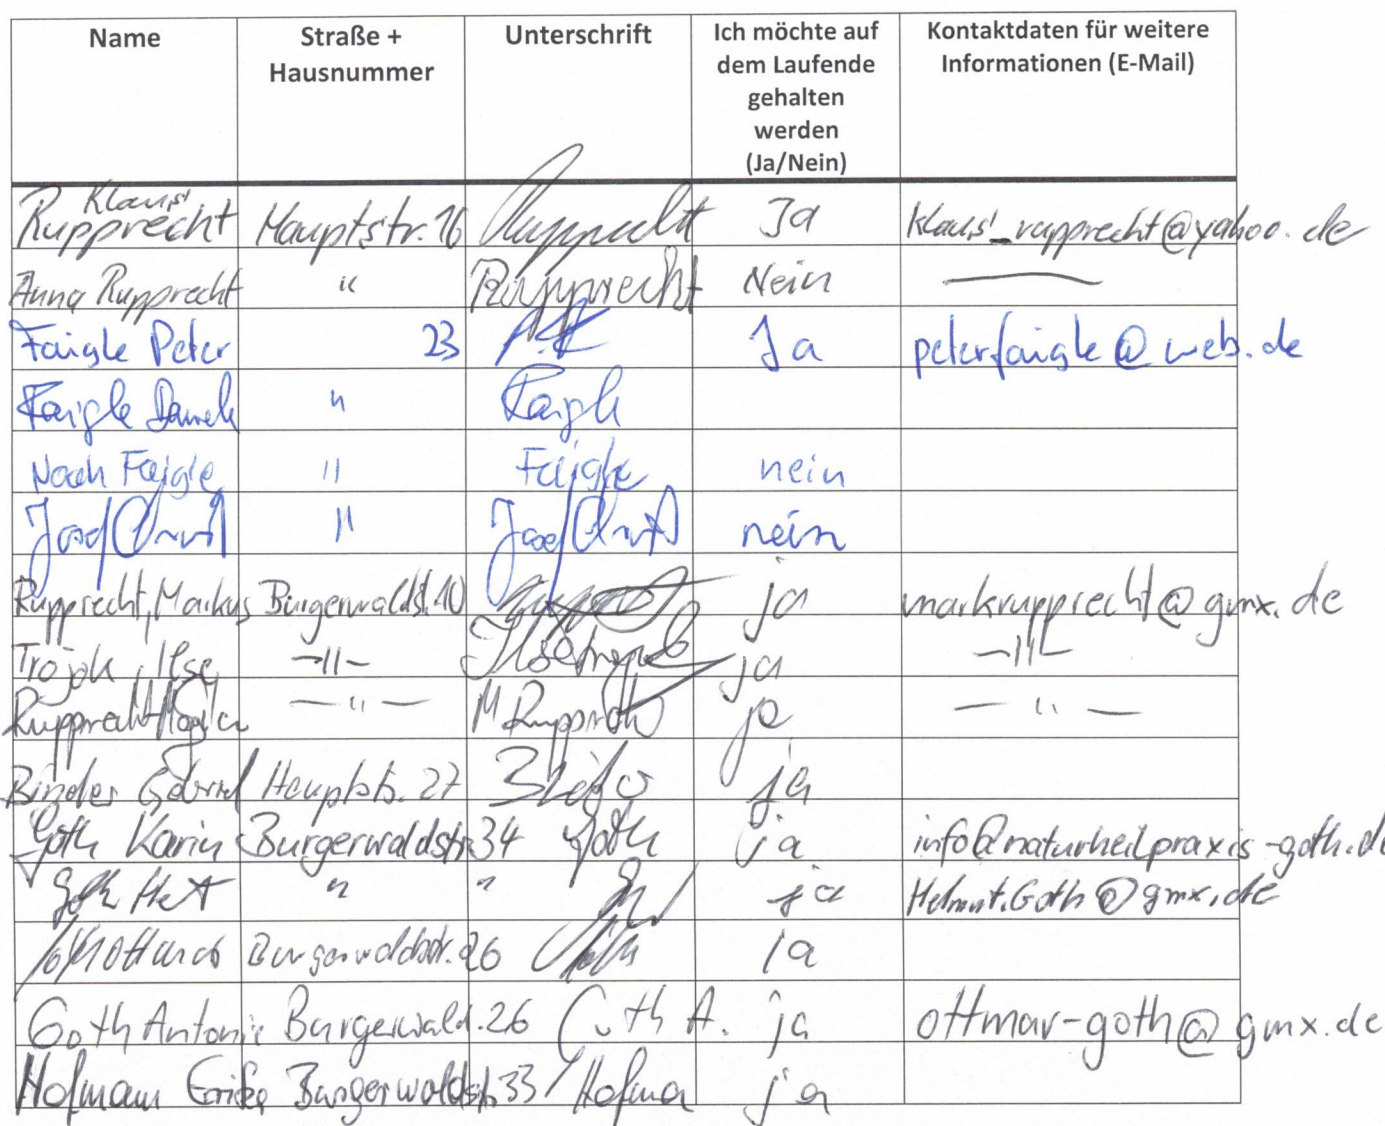 Name Straße + Hausnummer Unterschrift Ich möchte auf dem Laufende gehalten werden (Ja/Nein) Kontaktdaten für weitere Informationen (E-Mail)
Klaus Rupprecht Hauptstr. 16 Rupprecht Ja klaus_rupprecht@yahoo.de
Anna Rupprecht " Rupprecht Nein —
Faigle Peter 23 Ja peterfaigle@web.de
Faigle " Faigle
Noah Faigle " Faigle nein
Josef " Josef nein
Rupprecht, Markus Burgerwaldst. 10 ja markrupprecht@gmx.de
Trojok, Ilse —"— ja —"—
Rupprecht —"— M Rupprecht ja —"—
Binder Hauptstr. 27 ja
Goth Karin Burgerwaldstr. 34 Goth ja info@naturheilpraxis-goth.de
Goth " " ja Helmut.Goth@gmx.de
Burgerwaldstr. 26 ja
Goth Antonie Burgerwald. 26 Goth A. ja ottmar-goth@gmx.de
Hofmann Erika Burgerwaldstr. 33 Hofma ja